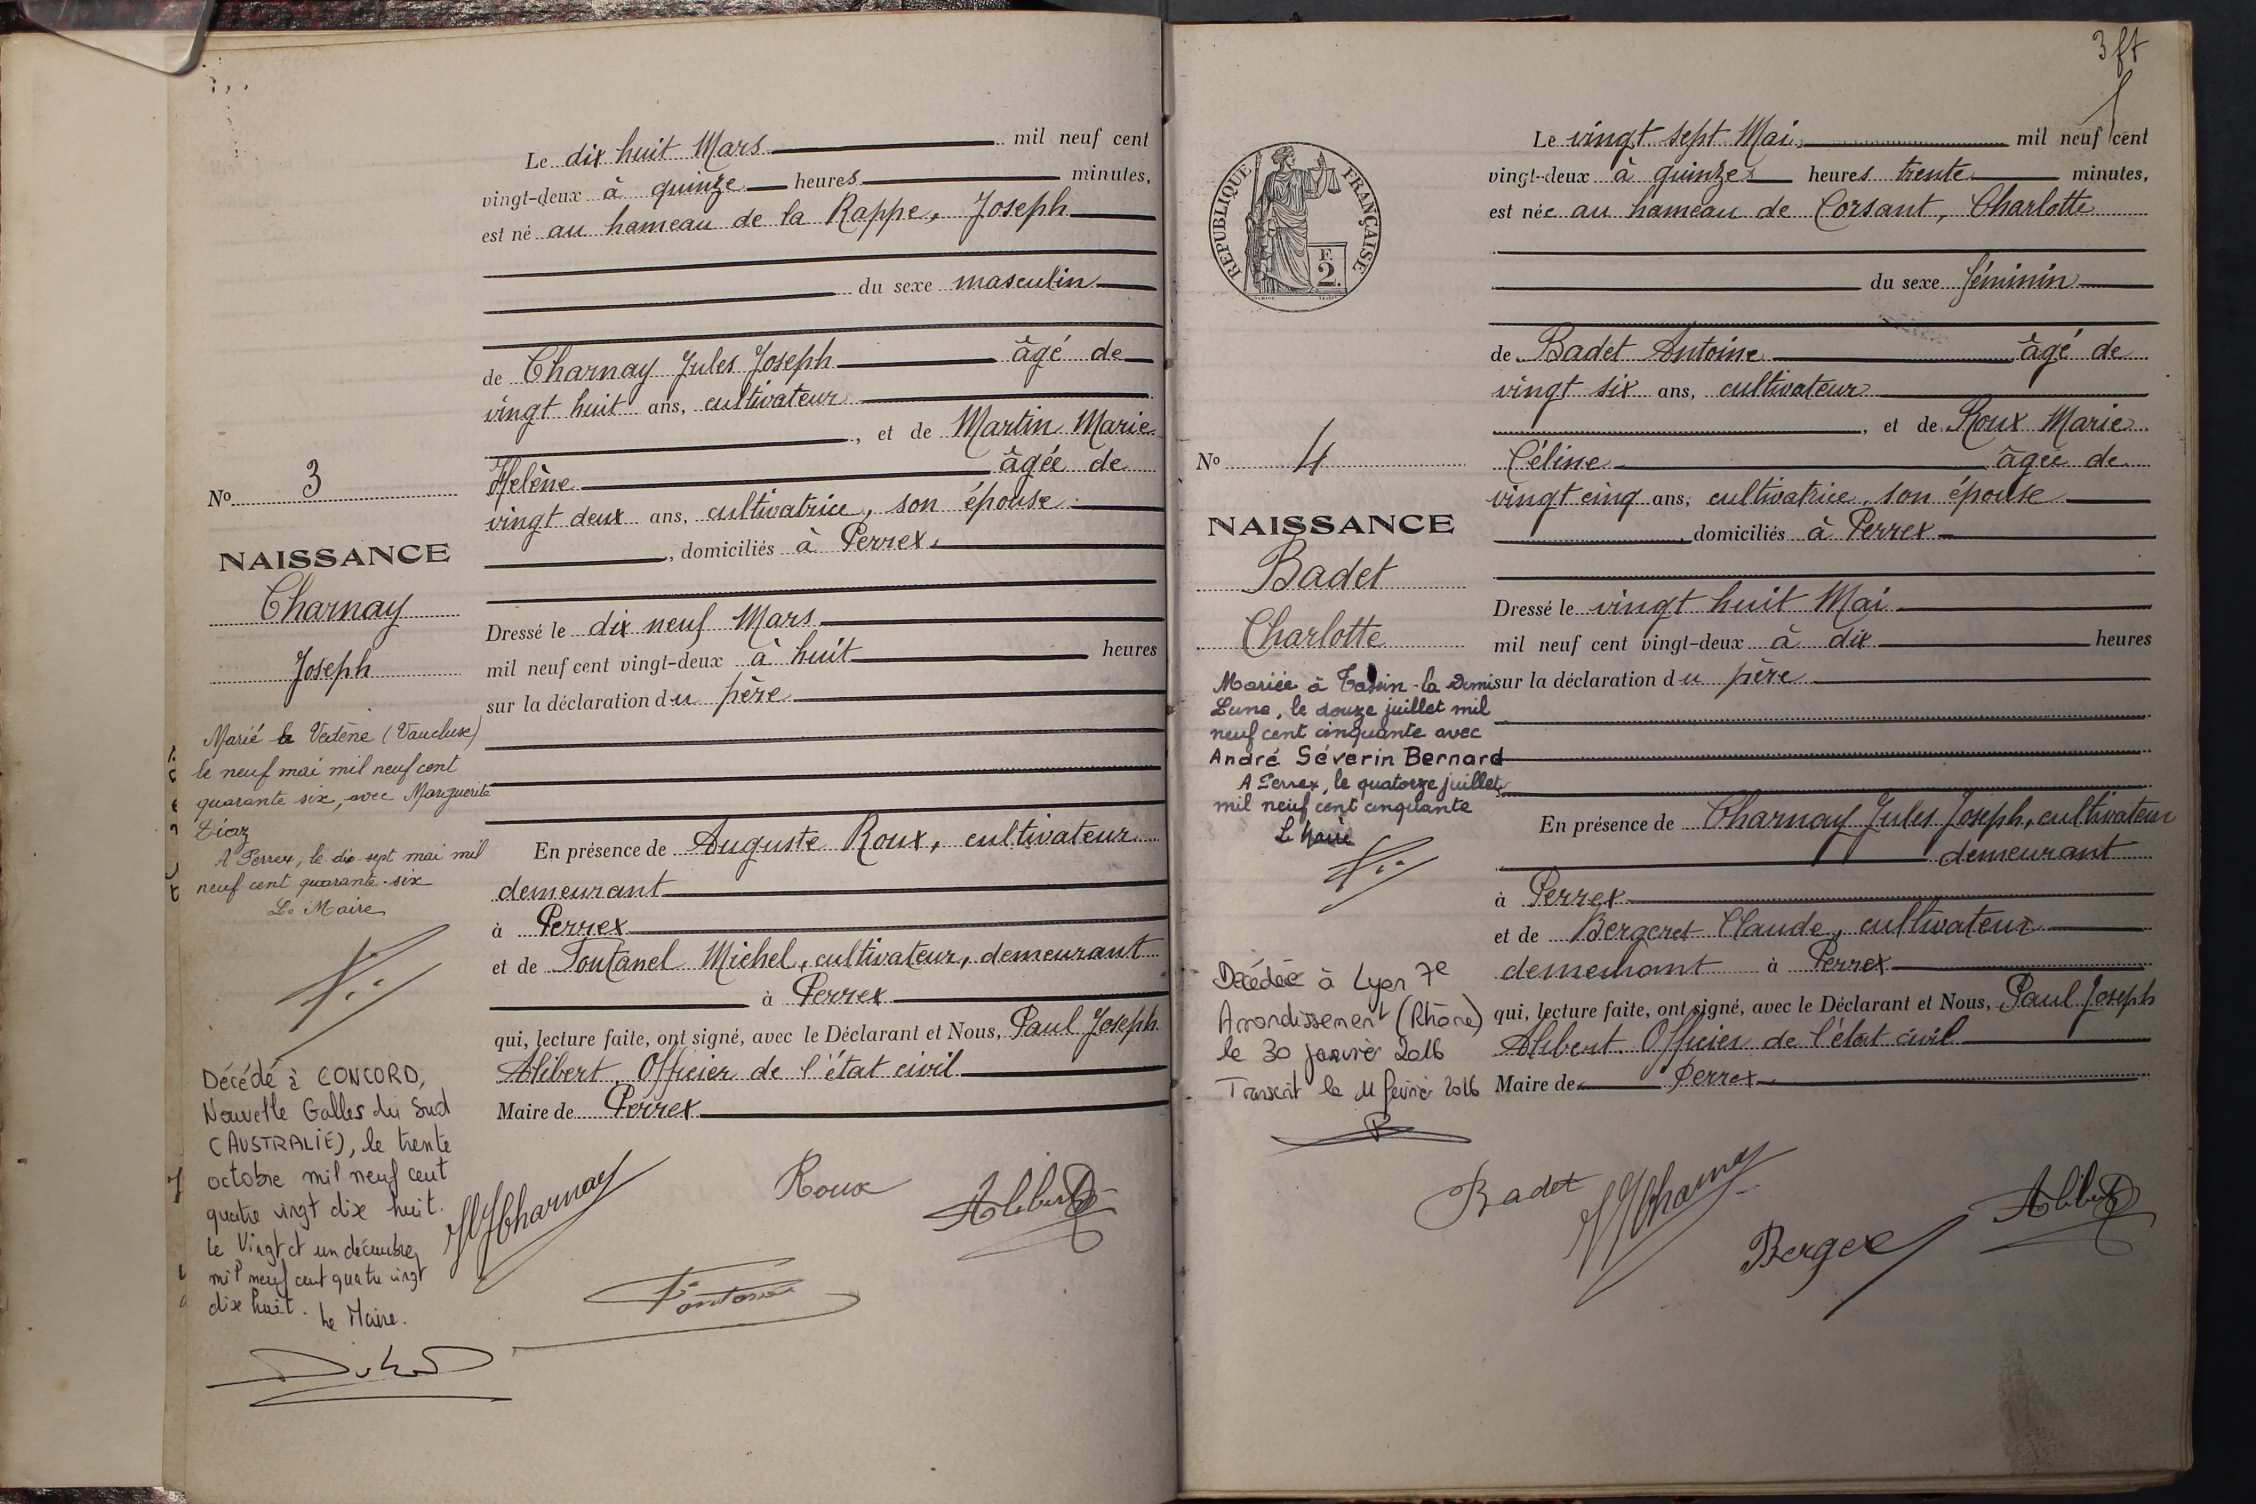 Le dix huit Mars mil neuf cent
vingt-deux à quinze heures minutes,
est né au hameau de la Rappe, Joseph
du sexe masculin
de Charnay Jules Joseph âgé de
vingt huit ans, cultivateur
, et de Martin Marie
Helène âgée de
vingt deux ans, cultivatrice, son épouse
, domiciliés à Perrex,
Dressé le dix neuf Mars
mil neuf cent vingt-deux à huit heures
sur la déclaration du père
En présence de Auguste Roux, cultivateur
demeurant
à Perrex
et de Fontanel Michel, cultivateur, demeurant
à Perrex
qui, lecture faite, ont signé, avec le Déclarant et Nous, Paul Joseph
Alibert, Officier de l'état civil
Maire de Perrex
JJCharnay
Roux
Alibert
Fontanel
No 3
NAISSANCE
Charnay
Joseph
Marié à Vedène (Vaucluse)
le neuf mai mil neuf cent
quarante six, avec Marguerite
Diaz
A Perrex, le dix sept mai mil
neuf cent quarante-six
Le Maire
Décédé à CONCORD,
Nouvelle Galles du Sud
(AUSTRALIE), le trente
octobre mil neuf cent
quatre vingt dix huit.
Le Vingt et un décembre
mil neuf cent quatre vingt
dix huit. Le Maire.
3 ft
RÉPUBLIQUE FRANÇAISE
F.
2.
Le vingt sept Mai, mil neuf cent
vingt-deux à quinze heures trente minutes,
est née au hameau de Corsant, Charlotte
du sexe féminin
de Badet Antoine âgé de
vingt six ans, cultivateur
, et de Roux Marie
Céline âgée de
vingt cinq ans, cultivatrice, son épouse
, domiciliés à Perrex
Dressé le vingt huit Mai
mil neuf cent vingt-deux à dix heures
sur la déclaration du père
En présence de Charnay Jules Joseph, cultivateur
demeurant
à Perrex
et de Bergeret Claude, cultivateur
demeurant à Perrex
qui, lecture faite, ont signé, avec le Déclarant et Nous, Paul Joseph
Alibert, Officier de l'état civil
Maire de Perrex
Badet
JJCharnay
Alibert
No 4
NAISSANCE
Badet
Charlotte
Mariée à Tassin-la Demi
Lune, le douze juillet mil
neuf cent cinquante avec
André Séverin Bernard
A Perrex, le quatorze juillet
mil neuf cent cinquante
Le Maire
Décédée à Lyon 7e
Arrondissement (Rhône)
le 30 janvier 2016
Transcrit le 11 février 2016